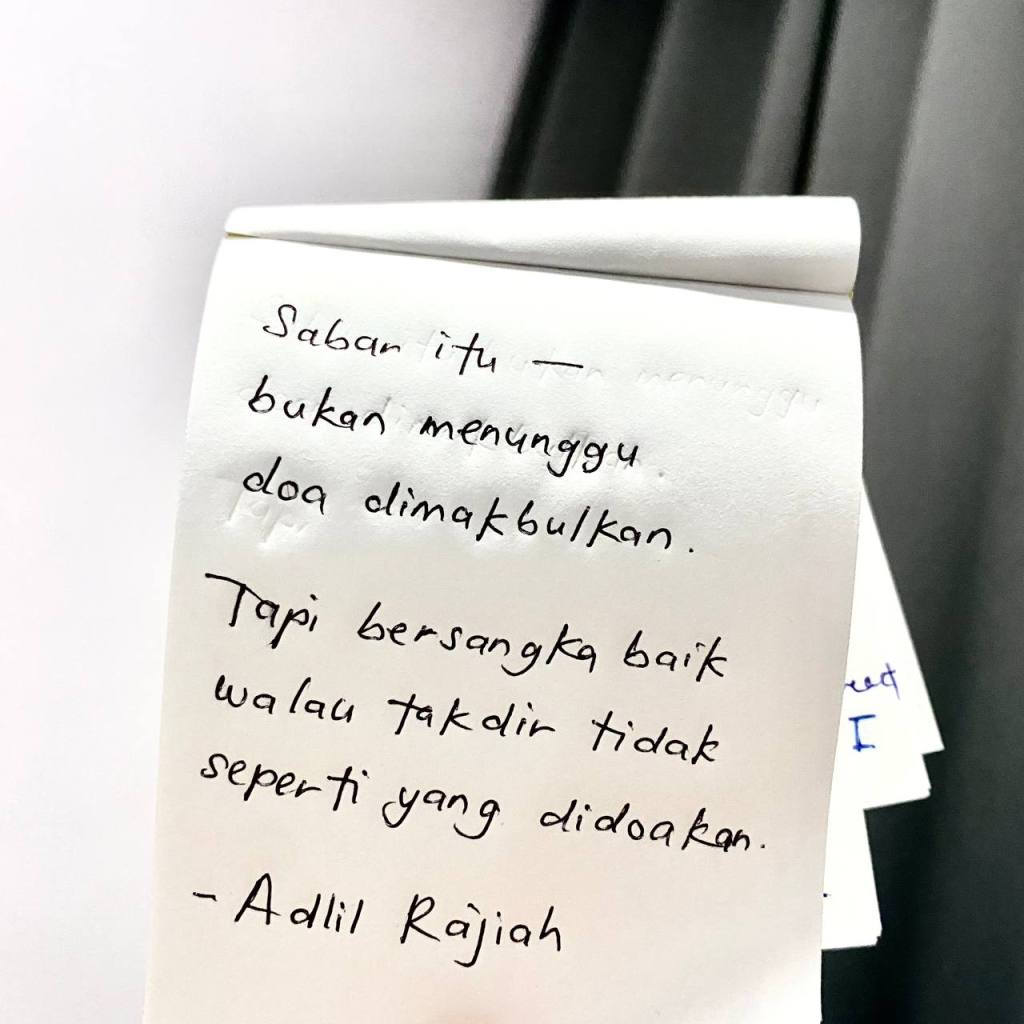 Sabar itu —
bukan menunggu
doa dimakbulkan.
Tapi bersangka baik
walau takdir tidak
seperti yang didoakan.
- Adlil Rajiah
I